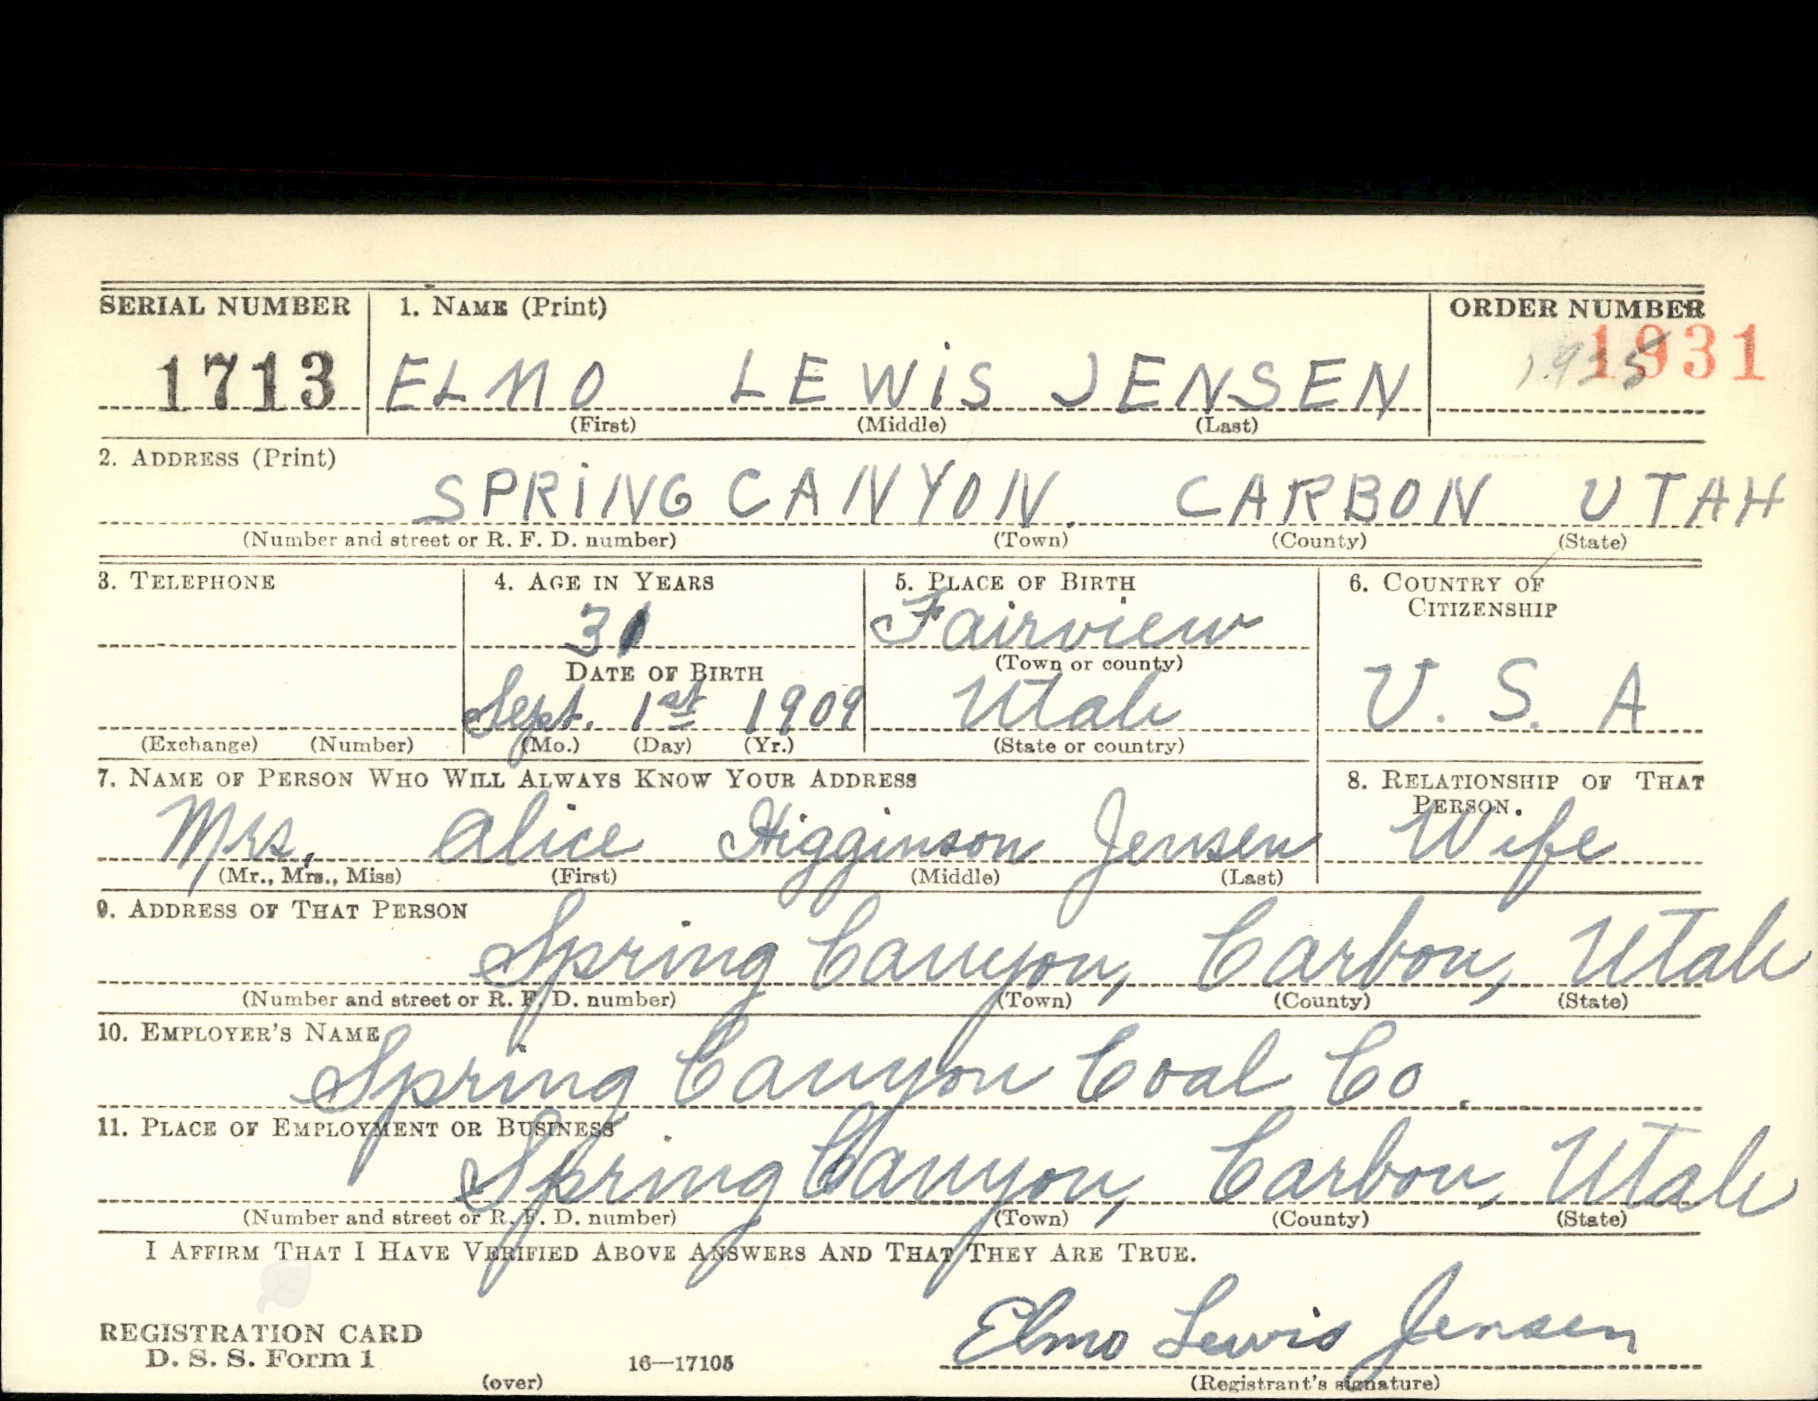 SERIAL NUMBER
1713
1. NAME (Print)
ELMO LEWIS JENSEN
(First) (Middle) (Last)
ORDER NUMBER
1931
2. ADDRESS (Print)
SPRING CANYON. CARBON UTAH
(Number and street or R. F. D. number) (Town) (County) (State)
3. TELEPHONE
(Exchange) (Number)
4. AGE IN YEARS
31
DATE OF BIRTH
Sept. 1st 1909
(Mo.) (Day) (Yr.)
5. PLACE OF BIRTH
Fairview
(Town or county)
Utah
(State or country)
6. COUNTRY OF
CITIZENSHIP
U. S. A
7. NAME OF PERSON WHO WILL ALWAYS KNOW YOUR ADDRESS
Mrs. Alice Higginson Jensen
(Mr., Mrs., Miss) (First) (Middle) (Last)
8. RELATIONSHIP OF THAT
PERSON.
Wife
9. ADDRESS OF THAT PERSON
Spring Canyon, Carbon, Utah
(Number and street or R. F. D. number) (Town) (County) (State)
10. EMPLOYER'S NAME
Spring Canyon Coal Co.
11. PLACE OF EMPLOYMENT OR BUSINESS
Spring Canyon, Carbon, Utah
(Number and street or R. F. D. number) (Town) (County) (State)
I AFFIRM THAT I HAVE VERIFIED ABOVE ANSWERS AND THAT THEY ARE TRUE.
REGISTRATION CARD
D. S. S. Form 1
16—17105
(over)
Elmo Lewis Jensen
(Registrant's signature)